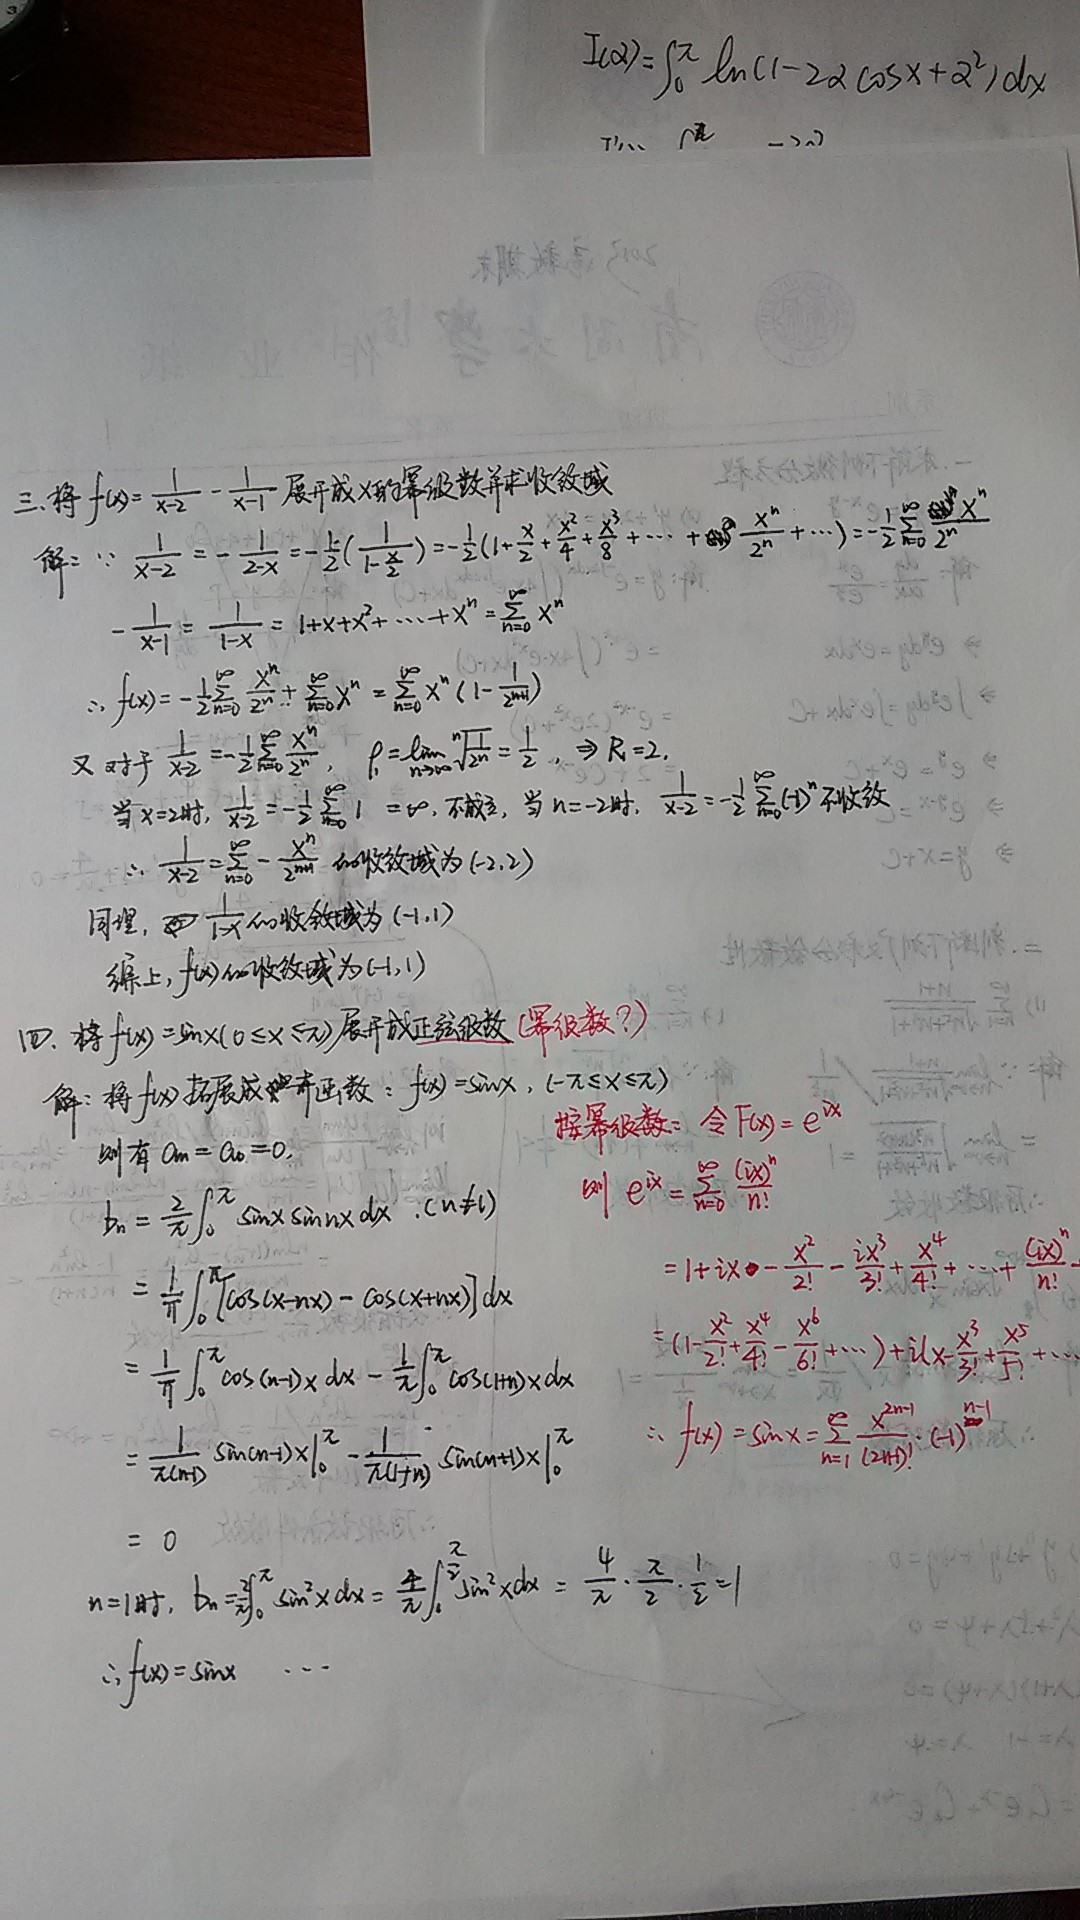 I(α)=∫₀^π ln(1-2α cosx+α²)dx
三、将 f(x)=1/(x-2) - 1/(x-1) 展开成x的幂级数并求收敛域
解: ∵ 1/(x-2) = -1/(2-x) = -1/2(1/(1-x/2)) = -1/2(1+x/2+x²/4+x³/8+⋯+xⁿ/2ⁿ+⋯) = -1/2 ∑_{n=0}^∞ xⁿ/2ⁿ
-1/(x-1) = 1/(1-x) = 1+x+x²+⋯+xⁿ = ∑_{n=0}^∞ xⁿ
∴ f(x) = -1/2 ∑_{n=0}^∞ xⁿ/2ⁿ + ∑_{n=0}^∞ xⁿ = ∑_{n=0}^∞ xⁿ(1-1/2ⁿ⁺¹)
又对于 1/(x-2) = -1/2 ∑_{n=0}^∞ xⁿ/2ⁿ, ρ₁ = lim_{n→∞} ⁿ√(1/2ⁿ) = 1/2, ⇒ R₁=2.
当x=2时, 1/(x-2) = -1/2 ∑_{n=0}^∞ 1 = ∞, 不成立, 当n=-2时, 1/(x-2) = -1/2 ∑_{n=0}^∞ (-1)ⁿ 不收敛
∴ 1/(x-2) = ∑_{n=0}^∞ - xⁿ/2ⁿ⁺¹ 的收敛域为(-2,2)
同理, 1/(1-x) 的收敛域为(-1,1)
综上, f(x)的收敛域为(-1,1)
四. 将 f(x)=sinx(0≤x≤π)展开成正弦级数(幂级数?)
解: 将f(x)拓展成奇函数: f(x)=sinx, (-π≤x≤π)
则有 aₙ=a₀=0.
bₙ = 2/π ∫₀^π sinx sinnx dx. (n≠1)
= 1/π ∫₀^π [cos(x-nx) - cos(x+nx)]dx
= 1/π ∫₀^π cos(n-1)x dx - 1/π ∫₀^π cos(1+n)x dx
= 1/(π(n-1)) sin(n-1)x|₀^π - 1/(π(1+n)) sin(n+1)x|₀^π
= 0
n=1时, bₙ = 2/π ∫₀^π sin²x dx = 4/π ∫₀^{π/2} sin²x dx = 4/π · π/2 · 1/2 = 1
∴ f(x)=sinx ⋯
按幂级数: 令F(x)=e^{ix}
则 e^{ix} = ∑_{n=0}^∞ (ix)ⁿ/n!
= 1+ix - x²/2! - ix³/3! + x⁴/4! + ⋯ + (ix)ⁿ/n! +
= (1 - x²/2! + x⁴/4! - x⁶/6! + ⋯) + i(x - x³/3! + x⁵/5! + ⋯
∴ f(x) = sinx = ∑_{n=1}^∞ x^{2n-1}/(2n-1)! · (-1)^{n-1}